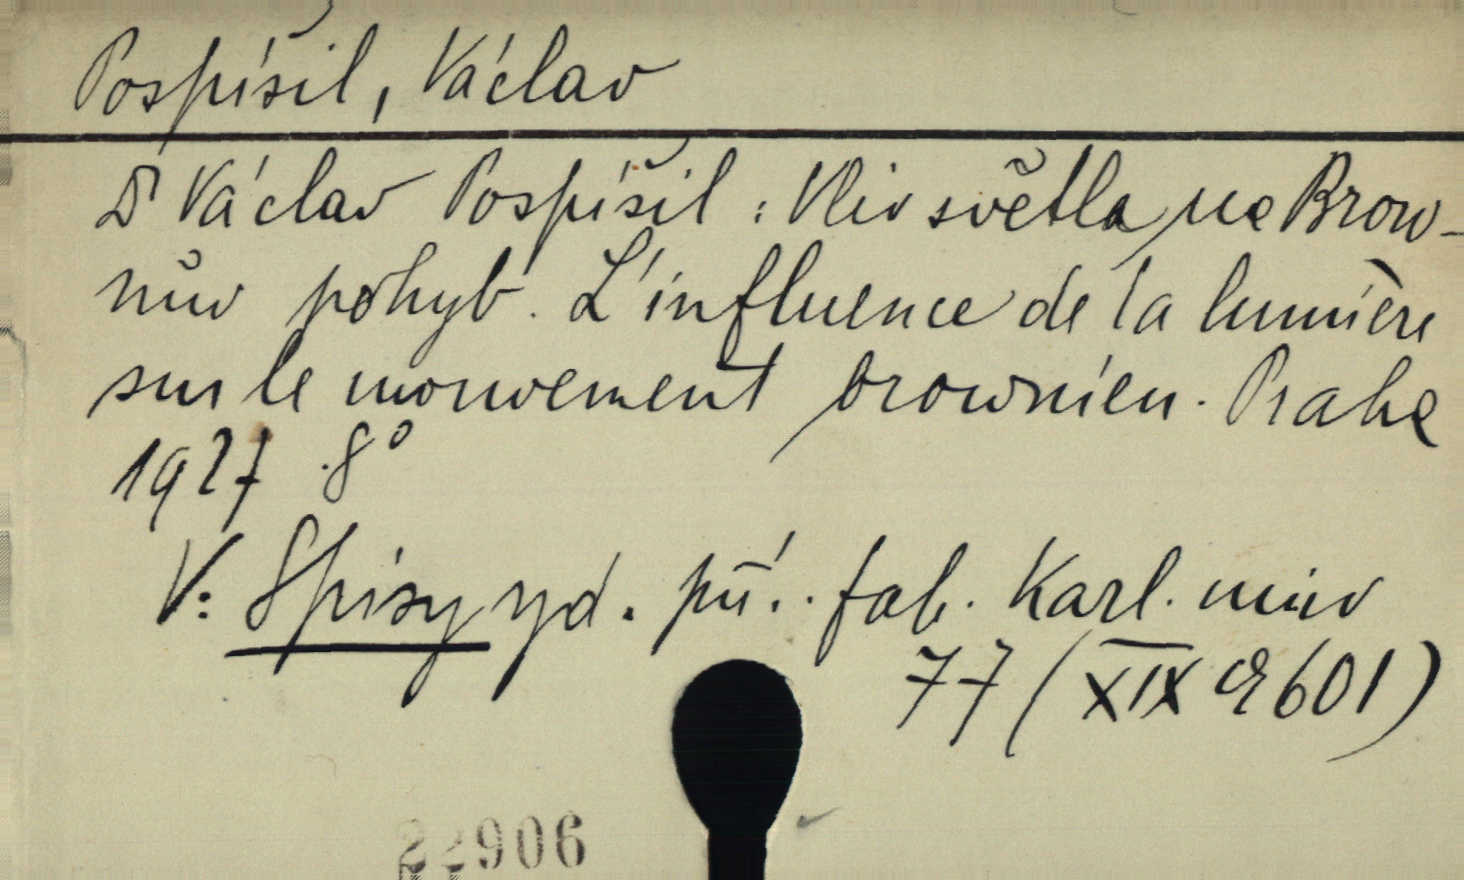 Pospíšil, Václav
Dr Václav Pospíšil : Vliv světla na Brow-
nův pohyb. L'influence de la lumière
sur le mouvement brownien. Praha
1927 .8°
V: Spisy vyd. při. fak. Karl. univ
77 (XIX E 601)
22906